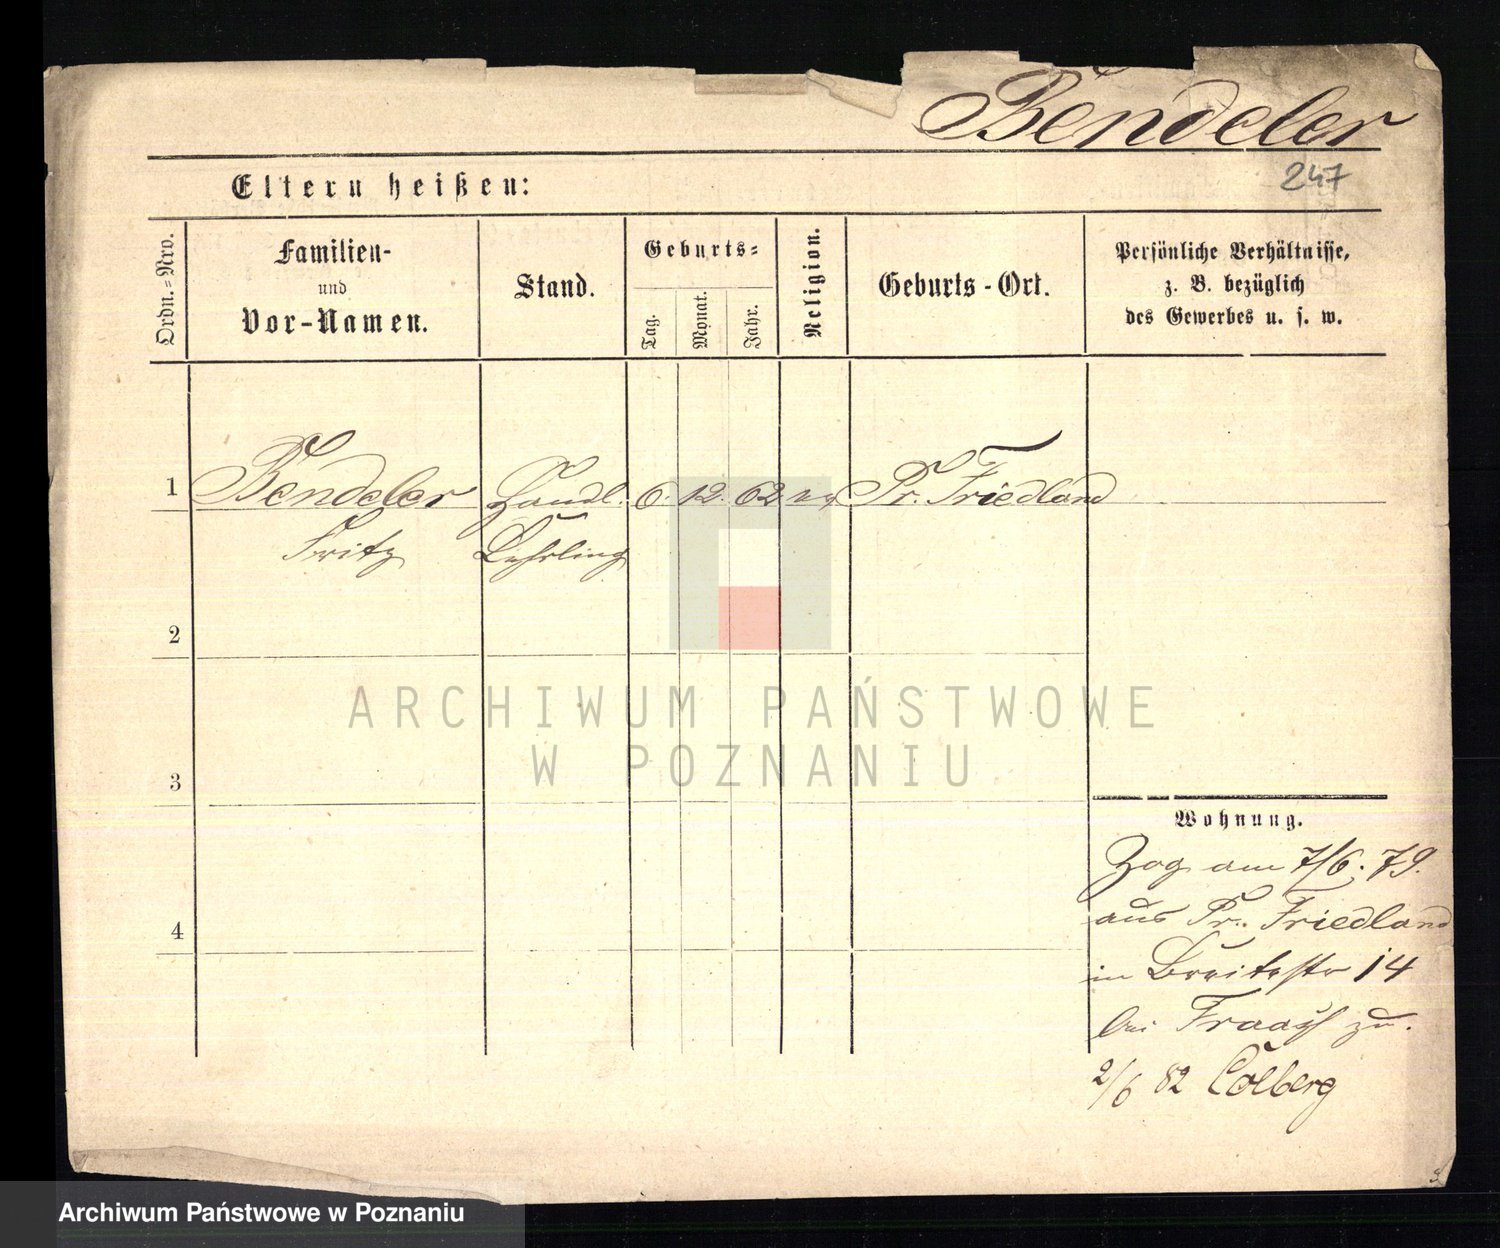 Bendeler
247
Eltern heißen:
Ordn.=Nro.
Familien-
und
Vor-Namen.
Stand.
Geburts=
Tag.
Monat.
Jahr.
Religion.
Geburts-Ort.
Persönliche Verhältnisse,
z. B. bezüglich
des Gewerbes u. s. w.
1
Bendeler
Handl.
6.
12.
62
ev
Pr. Friedland
Fritz
Lehrling
2
3
4
Wohnung.
Zog am 7/6. 79.
aus Pr. Friedland
in Breitestr 14
bei zu.
2/6 82 Colberg
ARCHIWUM PAŃSTWOWE
W POZNANIU
Archiwum Państwowe w Poznaniu